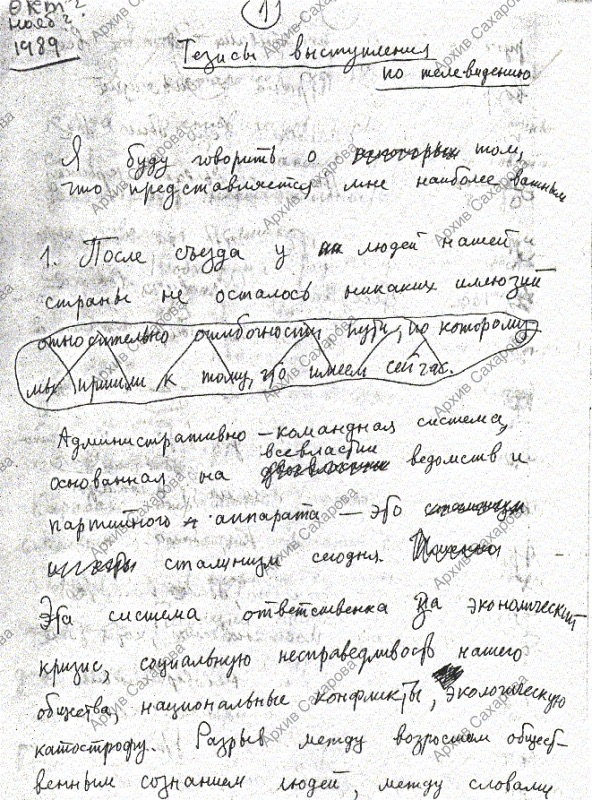 окт?
нояб?
1989
1
Тезисы выступления
по телевидению
Я буду говорить о некоторых том,
что представляется мне наиболее важным
1. После съезда у людей нашей
страны не осталось никаких иллюзий
относительно ошибочности пути, по которому
мы пришли к тому, что имеем сейчас.
Административно-командная система,
всевластии
основанная на ведомств и
партийного аппарата — это
сталинизм сегодня.
Эта система ответственна за экономический
кризис, социальную несправедливость нашего
общества, национальные конфликты, экологическую
катострофу. Разрыв между возросшим общест-
венным сознанием людей, между словами
Архив Сахарова